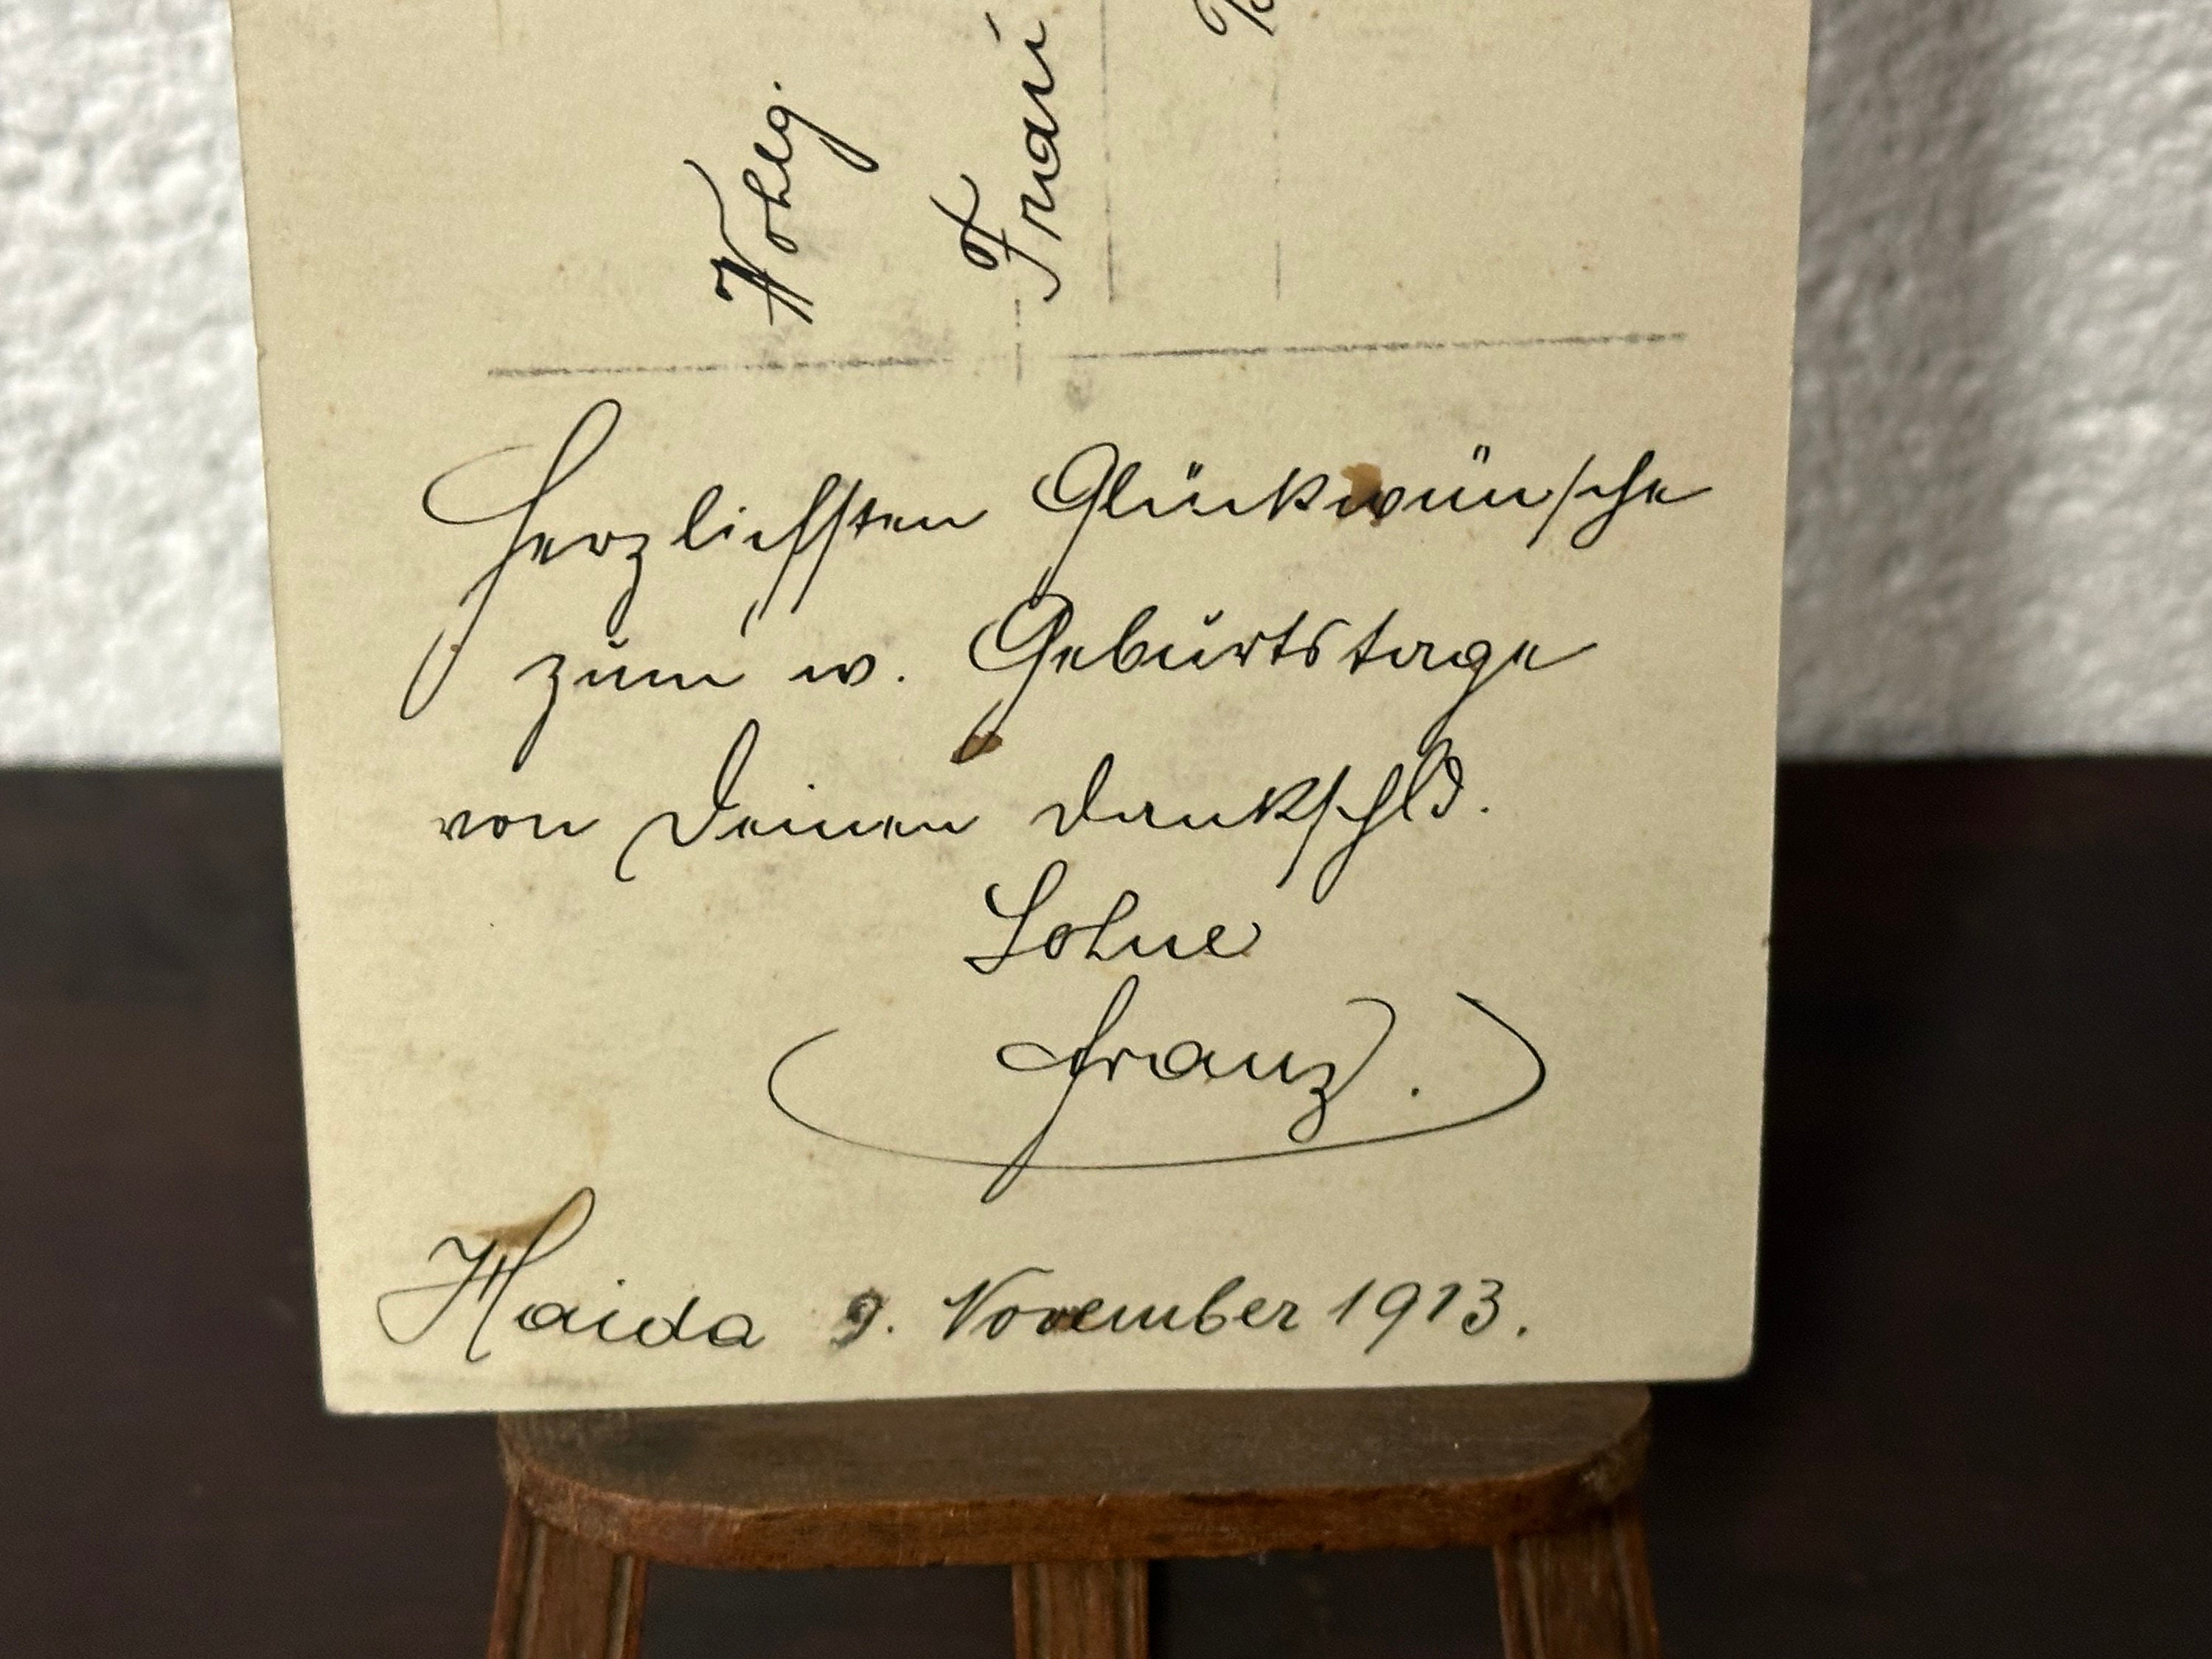 Wohlg.
Frau
Herzlichsten Glückwünsche
zum w. Geburtstage
von Deinen dankschld.
Sohne
Franz.
Haida 9. November 1913.